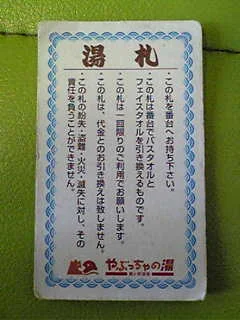 湯札
・この札を番台へお持ち下さい。
・この札は番台でバスタオルと
フェイスタオルを引き換えるものです。
・この札は一回限りのご利用でお願いします。
・この札は、代金とのお引き換えは致しません。
・この札の紛失・盗難・火災・滅失に対し、その
責任を負うことができません。
やぶっちゃの湯